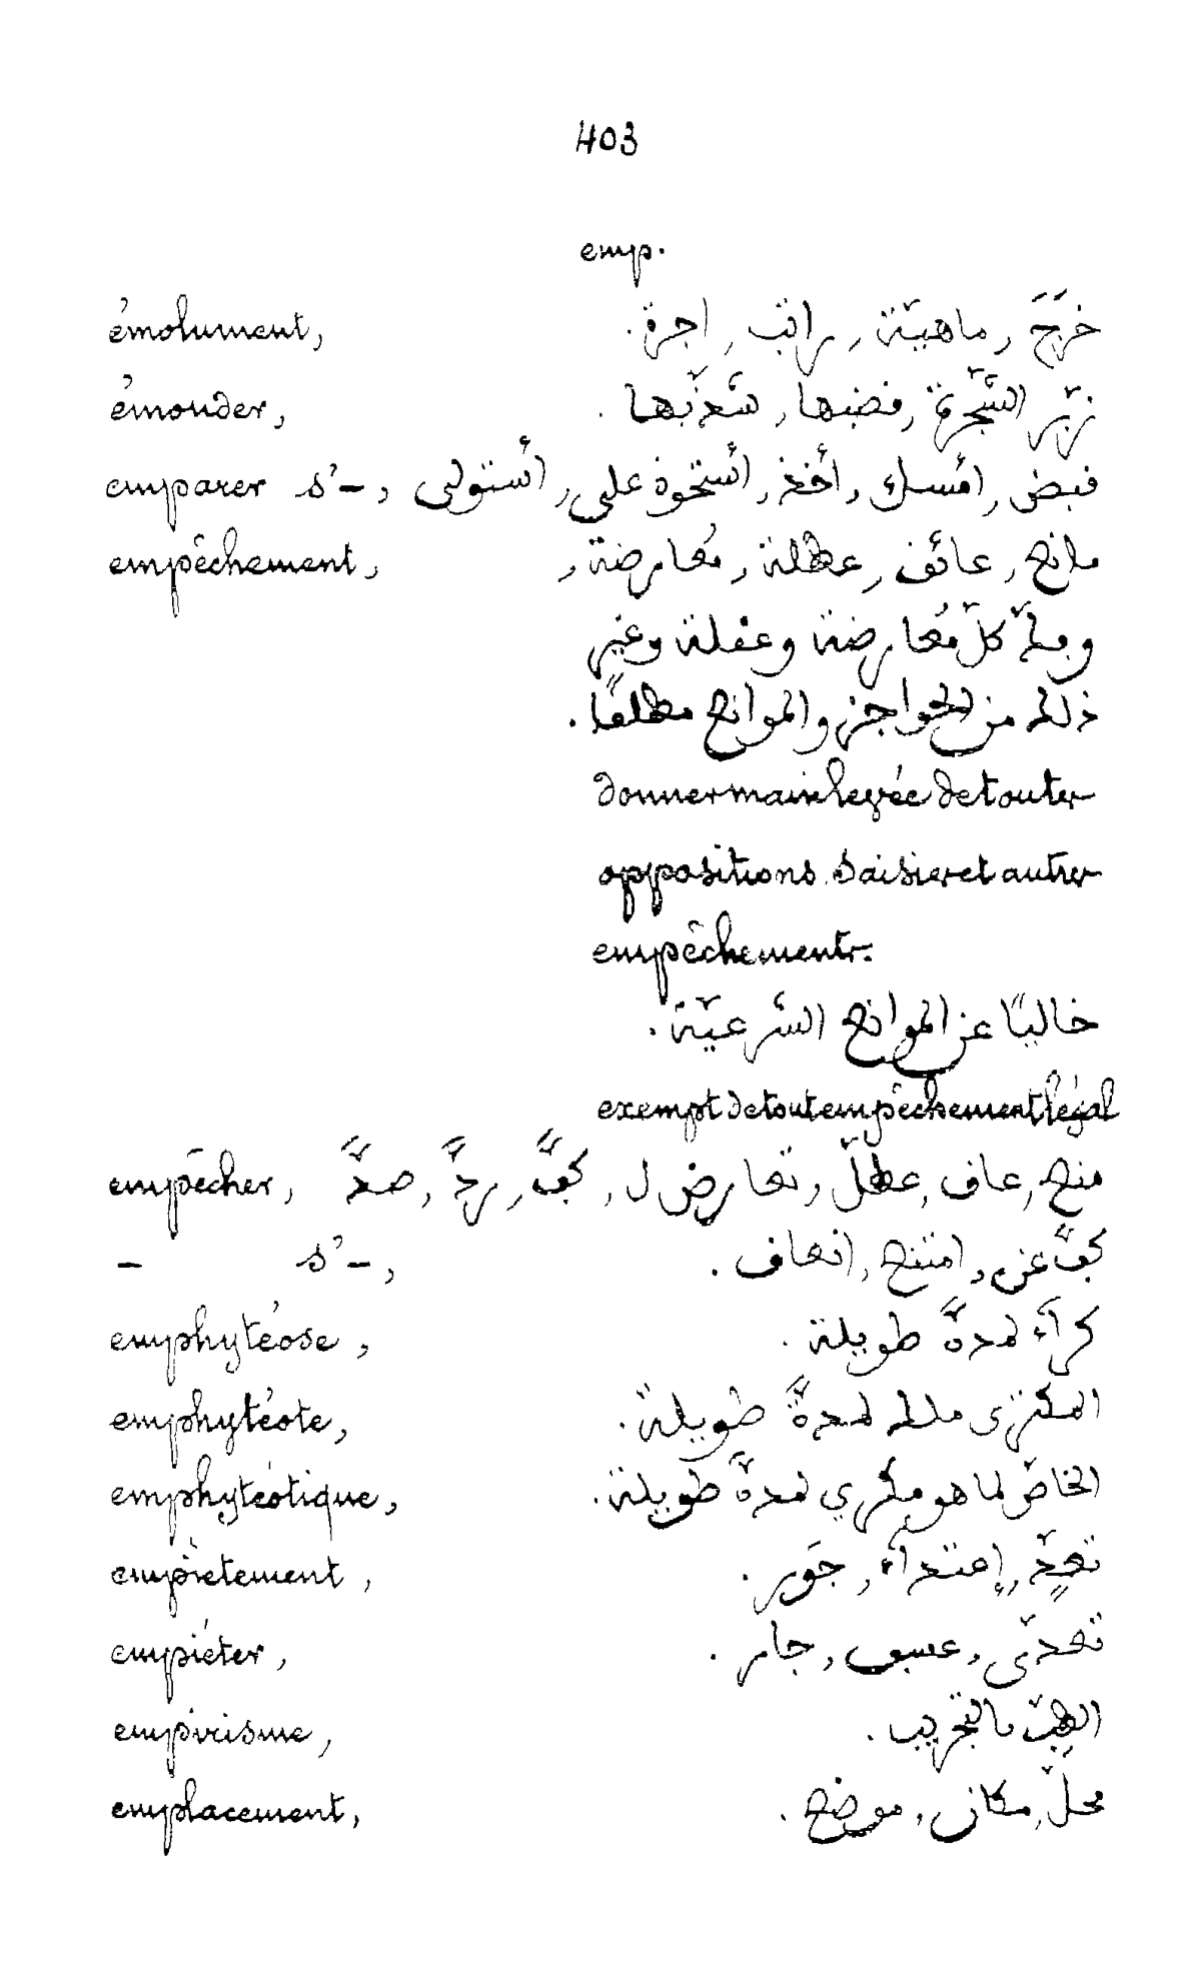 403
emp.
émolument, خرَجَ, ماهيّة, راتب, اجرة.
émonder, زبّر الشّجرة, قضبها, شذّبها.
emparer s'–, قبض, امْسك, أخذ, أستحوذ على, أستولى
empêchement, مانع, عائق, عطلة, مُعارضة,
وملّ كلّ مُعارضة وعقلة وغير
ذلك من الحواجز والموانع مطلقًا.
donner mainlevée de toutes
oppositions, saisies et autres
empêchements.
خاليًا عن الموانع الشّرعيّة.
exempt de tout empêchement légal
empêcher, منع, عاق, عطّل, تعارض ل, كفَّ, ردَّ, صدَّ
– s'–, كفَّ عن, امتنع, انعاق.
emphytéose, كرآء لمدّة طويلة.
emphytéote, المكترى ملك لمدّة طويلة.
emphytéotique, الخاصّ لما هو مكري لمدّة طويلة.
empiètement, تعدٍّ, إعتدآء, جَور.
empiéter, تعدّى, عسف, جار.
empirisme, الطبّ بالتجريب.
emplacement, محلّ, مكان, موضع.